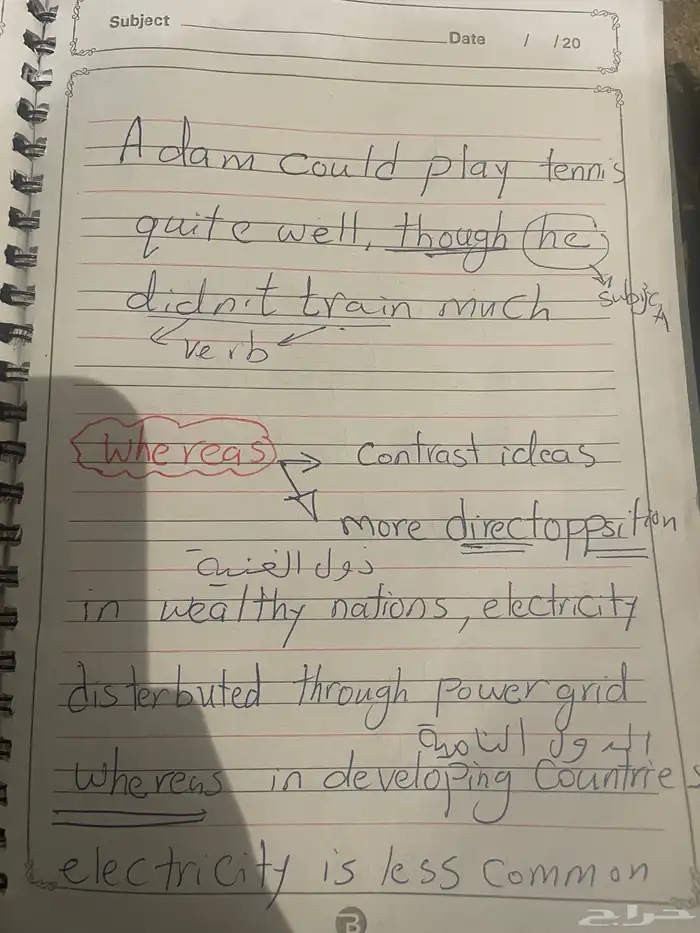 Subject
Date / /20
Adam could play tennis
quite well, though he
subjc
didn't train much
verb
whereas → contrast ideas
more direct oppsition
دول الغنية
in wealthy nations, electricity
disterbuted through power grid
الدول النامية
whereas in developing Countries
electricity is less common
B
حراج